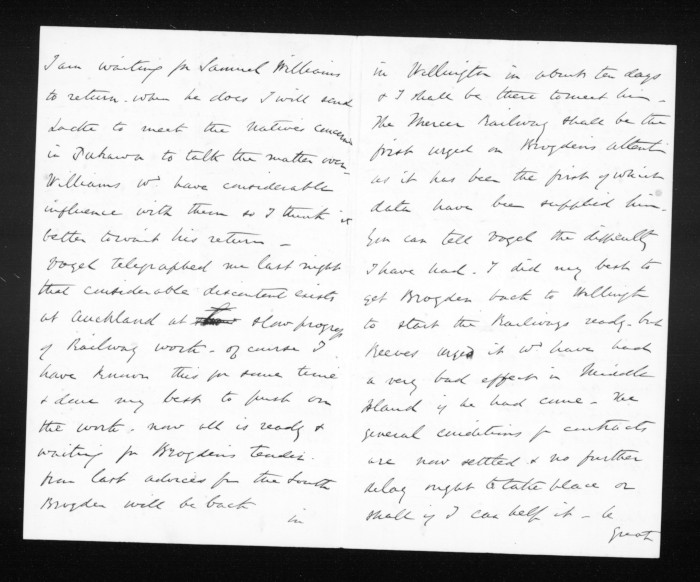 I am waiting for Samuel Williams
to return. When he does I will send
Locke to meet the natives concern
in Puhawa to talk the matter over
Williams wd. have considerable
influence with them so I think it
better to wait his return –
Vogel telegraphed me last night
that considerable discontent exists
at Auckland at slow progress
of Railway work – of course I
have known this for some time
& done my best to push on
the work. now all is ready &
waiting for Brogden's tender.
from last advices from the South
Brogden will be back
in
in Wellington in about ten days
& I shall be there to meet him –
The Mercer Railway shall be the
first urged on Brogden's attenti
as it has been the first of which
data have been supplied him –
You can tell Vogel the difficulty
I have had. I did my best to
get Brogden back to Wellingt
to start the Railways ready – but
Reeves urged it wd have had
a very bad effect in Middle
Island if he had come – The
general conditions for contracts
are now settled & no further
delay ought to take place or
shall if I can help it – a
great